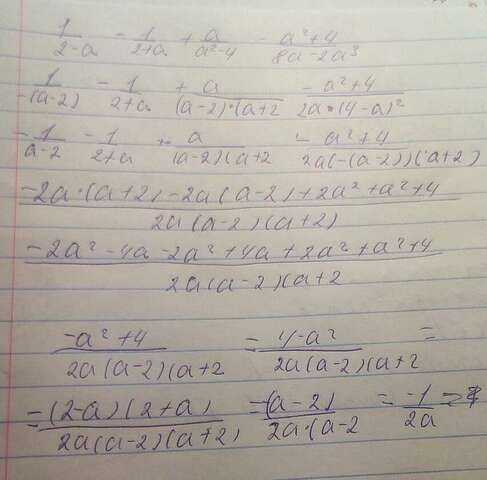 1/(2-a) - 1/(2+a) + a/(a²-4) - (a²+4)/(8a-2a³)
1/(-(a-2)) - 1/(2+a) + a/((a-2)·(a+2) - (a²+4)/(2a·(4-a)²
- 1/(a-2) - 1/(2+a) + a/((a-2)(a+2) - (a²+4)/(2a(-(a-2))(a+2)
(-2a·(a+2)-2a(a-2)+2a²+a²+4)/(2a(a-2)(a+2))
(-2a²-4a-2a²+4a+2a²+a²+4)/(2a(a-2)(a+2)
(-a²+4)/(2a(a-2)(a+2) = (4-a²)/(2a(a-2)(a+2) =
= ((2-a)(2+a))/(2a(a-2)(a+2)) = (-(a-2))/(2a·(a-2) = -1/(2a) =